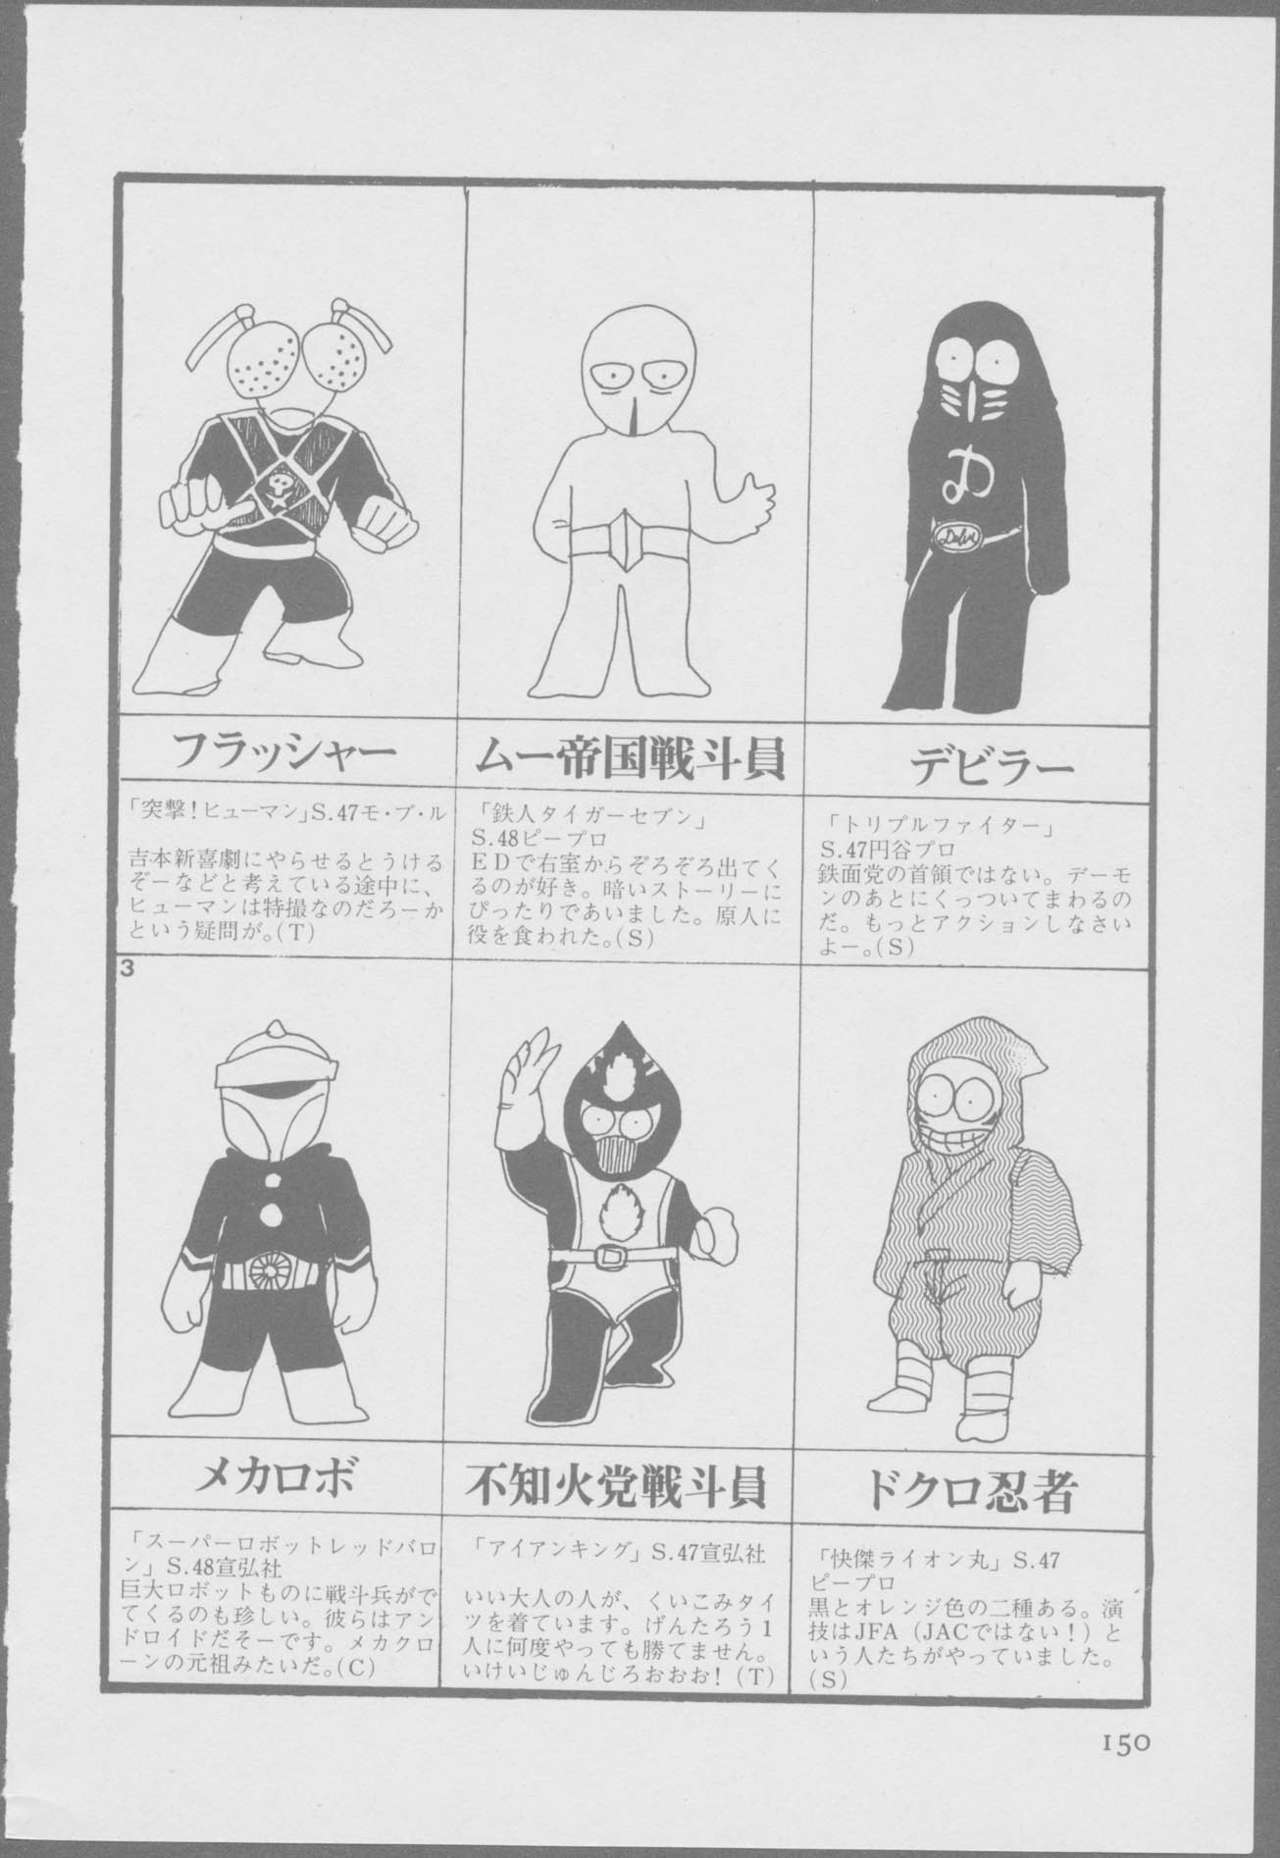 フラッシャー
「突撃!ヒューマン」S.47モ・ブ・ル
吉本新喜劇にやらせるとうける
ぞーなどと考えている途中に、
ヒューマンは特撮なのだろーか
という疑問が。(T)
ムー帝国戦斗員
「鉄人タイガーセブン」
S.48ピープロ
EDで右室からぞろぞろ出てく
るのが好き。暗いストーリーに
ぴったりであいました。原人に
役を食われた。(S)
デビラー
「トリプルファイター」
S.47円谷プロ
鉄面党の首領ではない。デーモ
ンのあとにくっついてまわるの
だ。もっとアクションしなさい
よー。(S)
3
メカロボ
「スーパーロボットレッドバロ
ン」S.48宣弘社
巨大ロボットものに戦斗兵がで
てくるのも珍しい。彼らはアン
ドロイドだそーです。メカクロ
ーンの元祖みたいだ。(C)
不知火党戦斗員
「アイアンキング」S.47宣弘社
いい大人の人が、くいこみタイ
ツを着ています。げんたろう1
人に何度やっても勝てません。
いけいじゅんじろおおお!(T)
ドクロ忍者
「快傑ライオン丸」S.47
ピープロ
黒とオレンジ色の二種ある。演
技はJFA(JACではない!)と
いう人たちがやっていました。
(S)
150